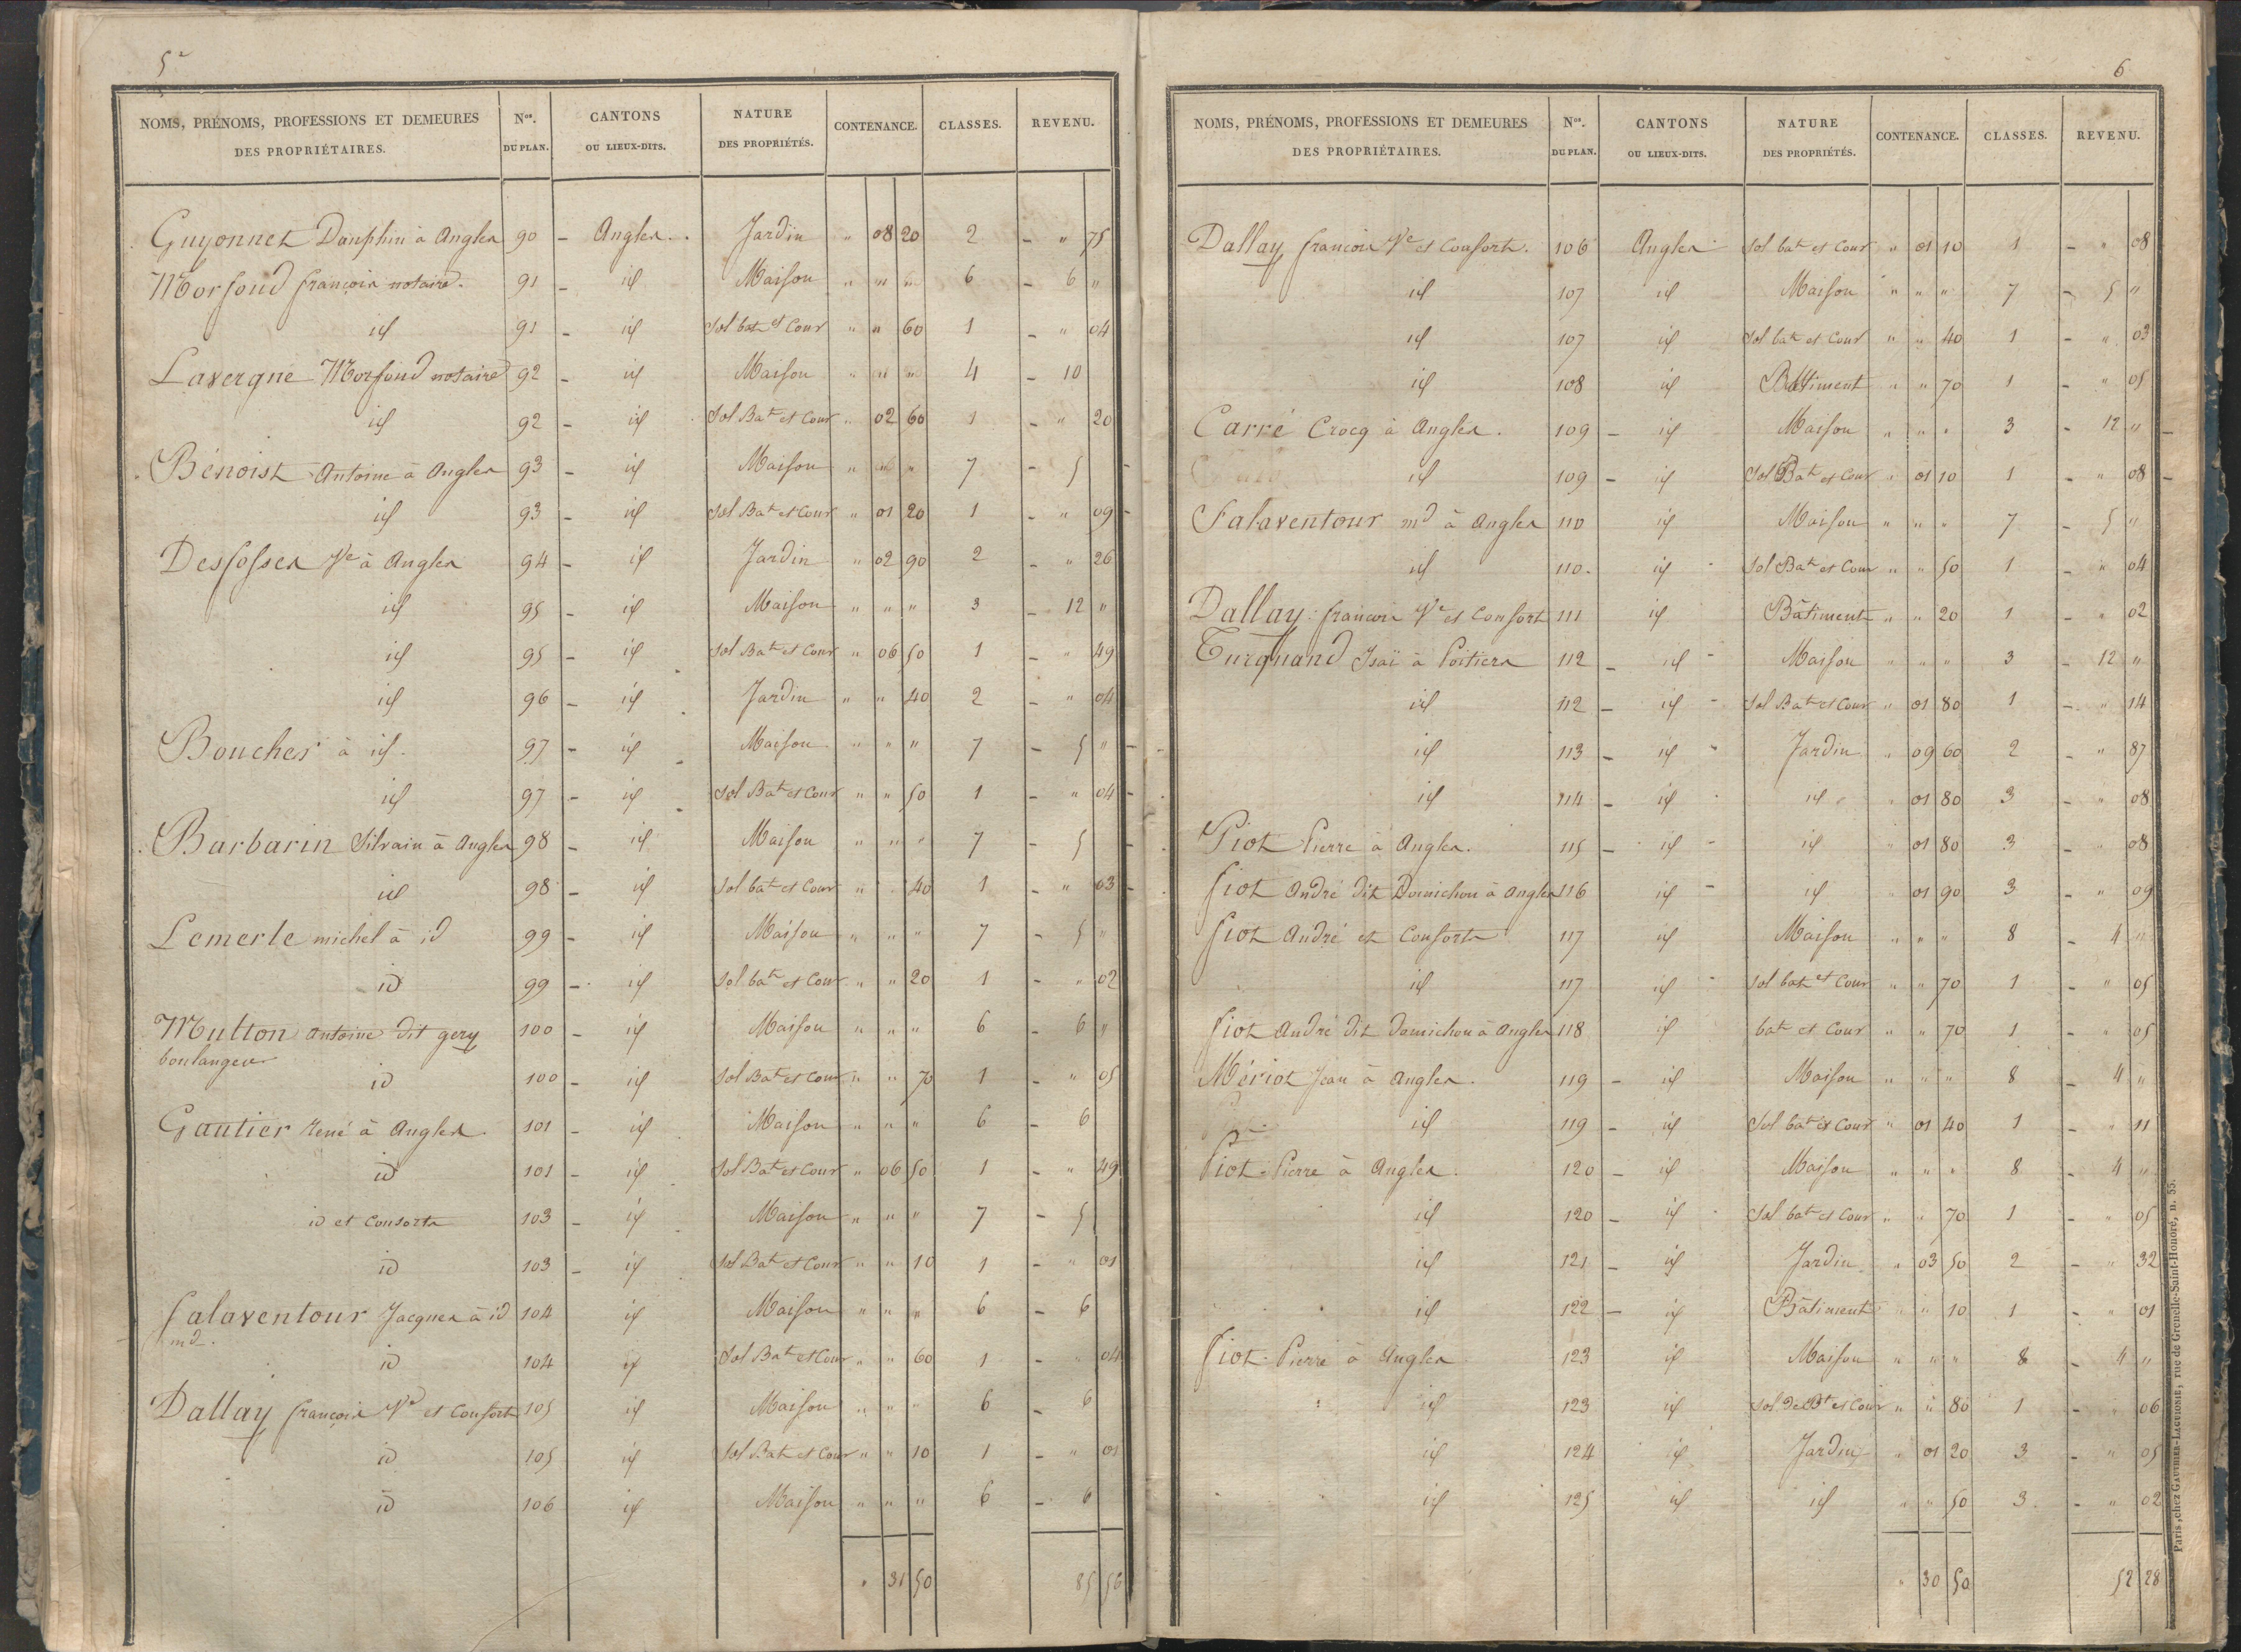 5
NOMS, PRÉNOMS, PROFESSIONS ET DEMEURES DES PROPRIÉTAIRES. Nos. DU PLAN. CANTONS OU LIEUX-DITS. NATURE DES PROPRIÉTÉS. CONTENANCE. CLASSES. REVENU.
Guyonnet Dauphin à Angles 90 - Angles. Jardin " 08 20 2 - " 75
Morfond françois notaire. 91 - id Maison " " " 6 - 6 "
id 91 - id Sol bat et Cour " " 60 1 - " 04
Lavergne Morfond notaire 92 - id Maison " " " 4 - 10
id 92 - id Sol Bat et Cour " 02 60 1 - " 20
Bénoist Antoine à Angles 93 - id Maison " " " 7 - 5
id 93 - id Sol Bat et Cour " 01 20 1 - " 09
Desfosses Ve à Angles 94 - id Jardin " 02 90 2 - " 26
id 95 - id Maison " " " 3 - 12 "
id 95 - id Sol Bat et Cour " 06 50 1 - " 49
id 96 - id Jardin " " 40 2 - " 04
Boucher à id. 97 - id Maison " " " 7 - 5 "
id 97 - id Sol Bat et Cour " " 50 1 - " 04
Barbarin Silvain à Angles 98 - id Maison " " " 7 - 5
id 98 - id Sol bat et Cour " " 40 1 - " 03
Lemerle michel à id 99 - id Maison " " " 7 - 5 "
id 99 - id Sol bat et Cour " " 20 1 - " 02
Mutton antoine dit gery 100 - id Maison " " " 6 - 6 "
boulanger
id 100 - id Sol Bat et Cour " " 70 1 - " 05
Gautier René à Angles. 101 - id Maison " " " 6 - 6
id 101 - id Sol Bat et Cour " 06 50 1 - " 49
id et Consorts 103 - id Maison " " " 7 - 5
id 103 - id Sol Bat et Cour " " 10 1 - " 01
falaventour Jacques à id 104 id Maison " " " 6 - 6
md.
id 104 id Sol Bat et Cour " " 60 1 - " 04
Dallay françois Ve et Consorts 105 id Maison " " " 6 - 6
id 105 id Sol Bat et Cour " " 10 1 - " 01
id 106 id Maison " " " 6 - 6
" 31 50 85 56
6
NOMS, PRÉNOMS, PROFESSIONS ET DEMEURES DES PROPRIÉTAIRES. Nos. DU PLAN. CANTONS OU LIEUX-DITS. NATURE DES PROPRIÉTÉS. CONTENANCE. CLASSES. REVENU.
Dallay françois Ve et Consorts. 106 Angles Sol bat et Cour " 01 10 1 - " 08
id 107 id Maison " " " 7 - 5 "
id 107 id Sol bat et Cour " " 40 1 - " 03
id 108 id Batiment " " 70 1 - " 05
Carré Crocq à Angles. 109 - id Maison " " " 3 - 12 "
id 109 - id Sol Bat et Cour " 01 10 1 - " 08
Falaventour md à Angles 110 id Maison " " " 7 - 5 "
id 110. id Sol Bat et Cour " " 50 1 - " 04
Dallay françois Ve et Consort 111 id Bâtiment " " 20 1 - " 02
Turquand Isaï à Poitiers 112 - id Maison " " " 3 - 12 "
id 112 - id Sol Bat et Cour " 01 80 1 - " 14
id 113 - id Jardin " 09 60 2 - " 87
id 114 - id id " 01 80 3 - " 08
Piot Pierre à Angles. 115 - id id " 01 80 3 - " 08
piot André dit Domichon à Angles 116 id id " 01 90 3 - " 09
piot André et Consorts 117 id Maison " " " 8 - 4 "
id 117 id Sol bat et Cour " " 70 1 - " 05
piot André dit Domichon à Angles 118 id bat et Cour " " 70 1 - " 05
Mériot Jean à Angles. 119 - id Maison " " " 8 - 4 "
id 119 - id Sol bat et Cour " 01 40 1 - " 11
Piot Pierre à Angles. 120 - id Maison " " " 8 - 4 "
id 120 - id Sol bat et Cour " " 70 1 - " 05
id 121 - id Jardin " 03 50 2 - " 32
id 122 - id Bâtiment " " 10 1 - " 01
piot Pierre à Angles 123 id Maison " " " 8 - 4 "
id 123 id Sol de Bt et Cour " " 80 1 - " 06
id 124 id Jardin " 01 20 3 - " 05
id 125 id id " " 50 3 - " 02
" 30 50 52 28
Paris, chez GAUTHIER-LAGUIONIE, rue de Grenelle-Saint-Honoré, n. 55.